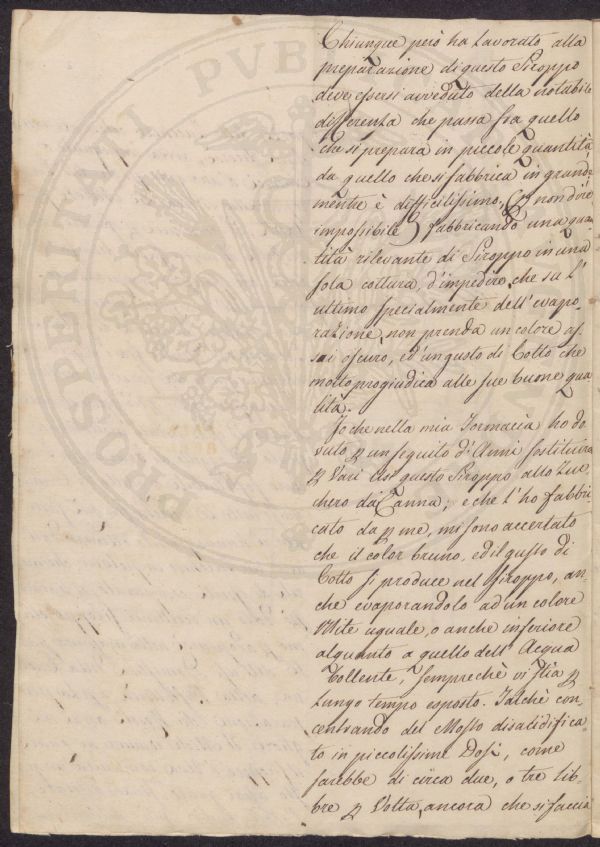 Chiunque però ha Lavorato alla
preparazione di questo Siroppo
deve essersi avveduto della notabile
differenza che passa fra quello
che si prepara in piccole quantità
da quello che si fabbrica in grande
mente è difficilissimo,
impossibile) fabbricando una qua
tità rilevante di Siroppo in una
sola cottura, d'impedire, che su l'
ultimo specialmente dell'evapo-
razione, non prenda un colore as-
sai oscuro, ed'un gusto di Cotto che
molto progiudica alle sue buone qua
lità.
Io che nella mia Farmacia ho do
vuto p un seguito d'Anni sostituire
p Vari usi questo Siroppo allo Zuc
chero da Canna; e che l'ho fabbri-
cato da p me, mi sono accertato
che il color bruno, ed il gusto di
Cotto si produce nel Siroppo, an-
che evaporandolo ad un colore
Mite uguale, o anche inferiore
alquanto a quello dell'Acqua
bollente, sempreché vi stia p
Lungo tempo esposto. Talchè con-
centrando del Mosto disacidifica-
to in piccolissime Dosi, come
sarebbe di circa due, o tre lib-
bre p Volta, ancora che si faccia
PROSPERITATI PVB